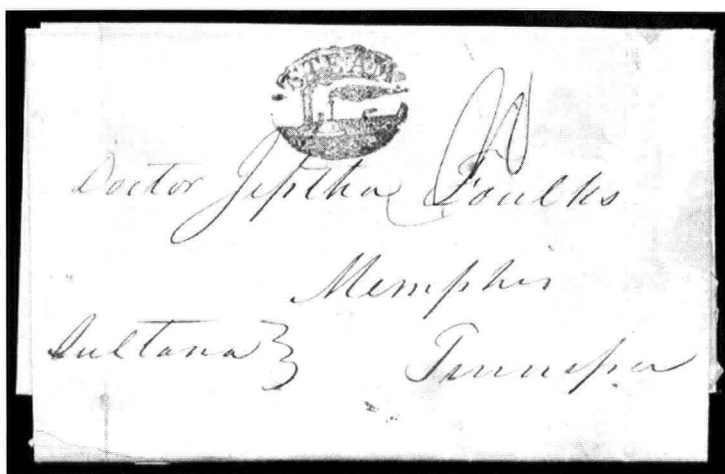 STEAM
Doctor Jeptha Foulks
Memphis
Sultana
Tennessee